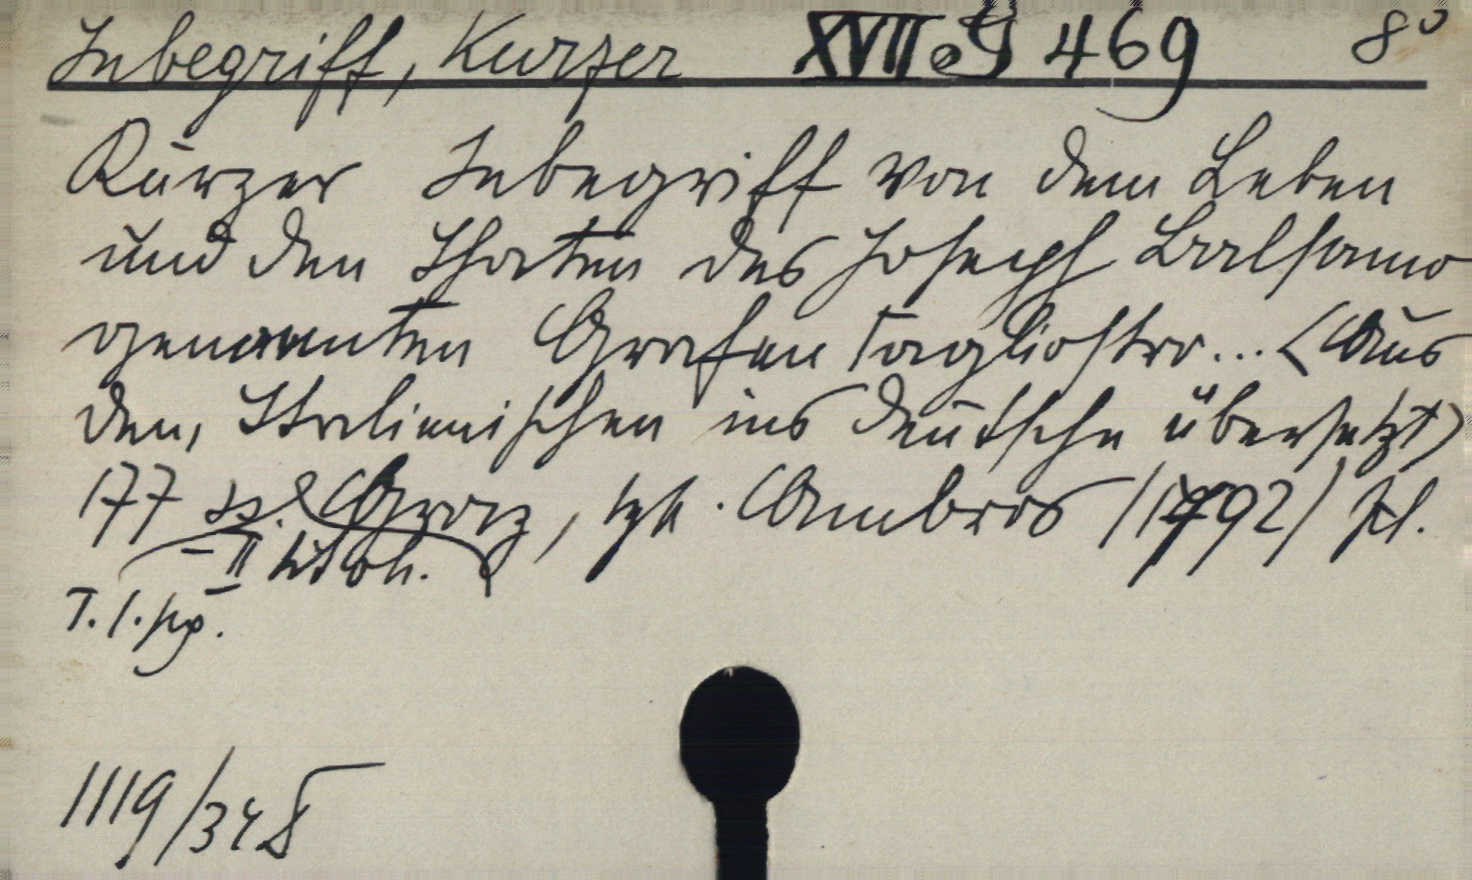 Inbegriff, Kurzer XVII J 469 8°
Kurzer Inbegriff von dem Leben
und den Thaten des Joseph Balsamo
genannten Grafen Cagliostro... (Aus
dem Italienischen ins Deutsche übersetzt)
177 SS. Graz, Ambros (1792) kl.
T. I. pg.
1119/345